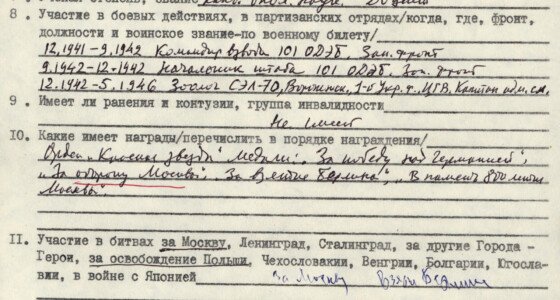 8. Участие в боевых действиях, в партизанских отрядах/когда, где, фронт,
должности и воинское звание-по военному билету/
12.1941-9.1942 Командир взвода 101 ОДЭБ, Зап. фронт
9.1942-12.1942 Начальник штаба 101 ОДЭБ. Зап. фронт
12.1942-5.1946 Зоолог СЭЛ-70, Воронежск, 1-й Укр. ф., ЦГВ. Капитан адм. сл.
9. Имеет ли ранения и контузии, группа инвалидности
Не имеет
10. Какие имеет награды/перечислить в порядке награждения/
Орден „Красная звезда". Медали: „За победу над Германией",
„За оборону Москвы", „За взятие Берлина", „В память 800 летия
Москвы".
II. Участие в битвах за Москву, Ленинград, Сталинград, за другие Города -
Герои, за освобождение Польши, Чехословакии, Венгрии, Болгарии, Югосла-
вии, в войне с Японией за Москву Взял Берлин